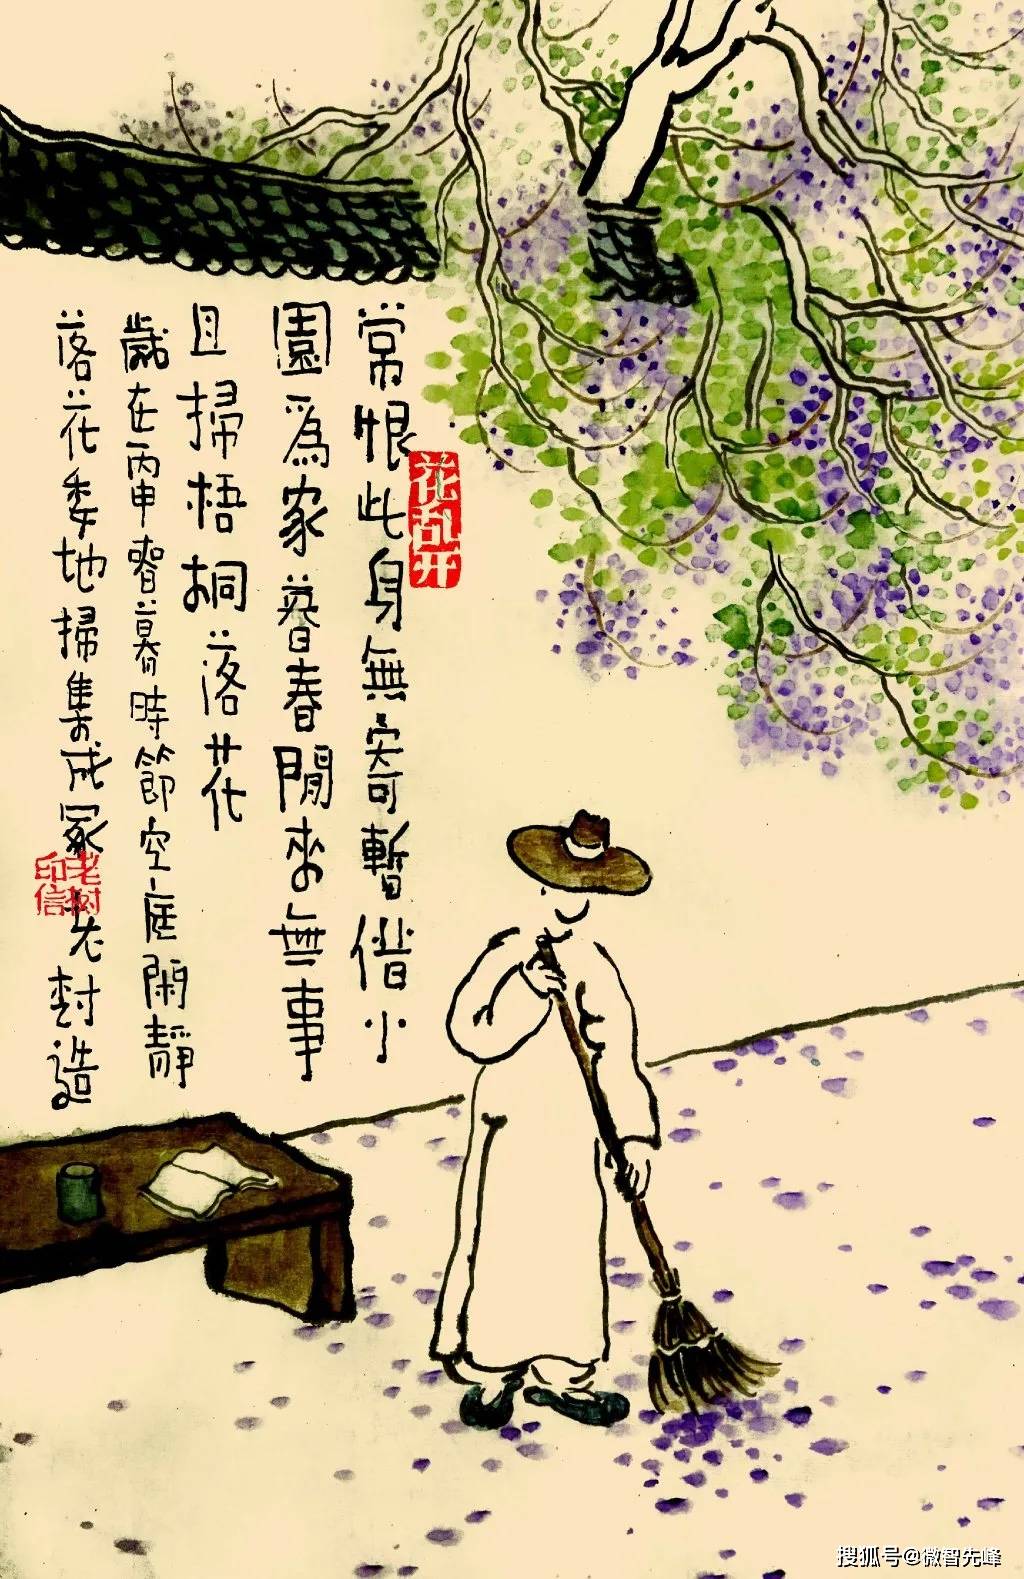 常恨此身無寄暫借小
園為家暮春閒來無事
且掃梧桐落花
歲在丙申春暮時節空庭閑靜
落花委地掃集成冢老樹造
花乱开
老树印信
搜狐号@微智先峰